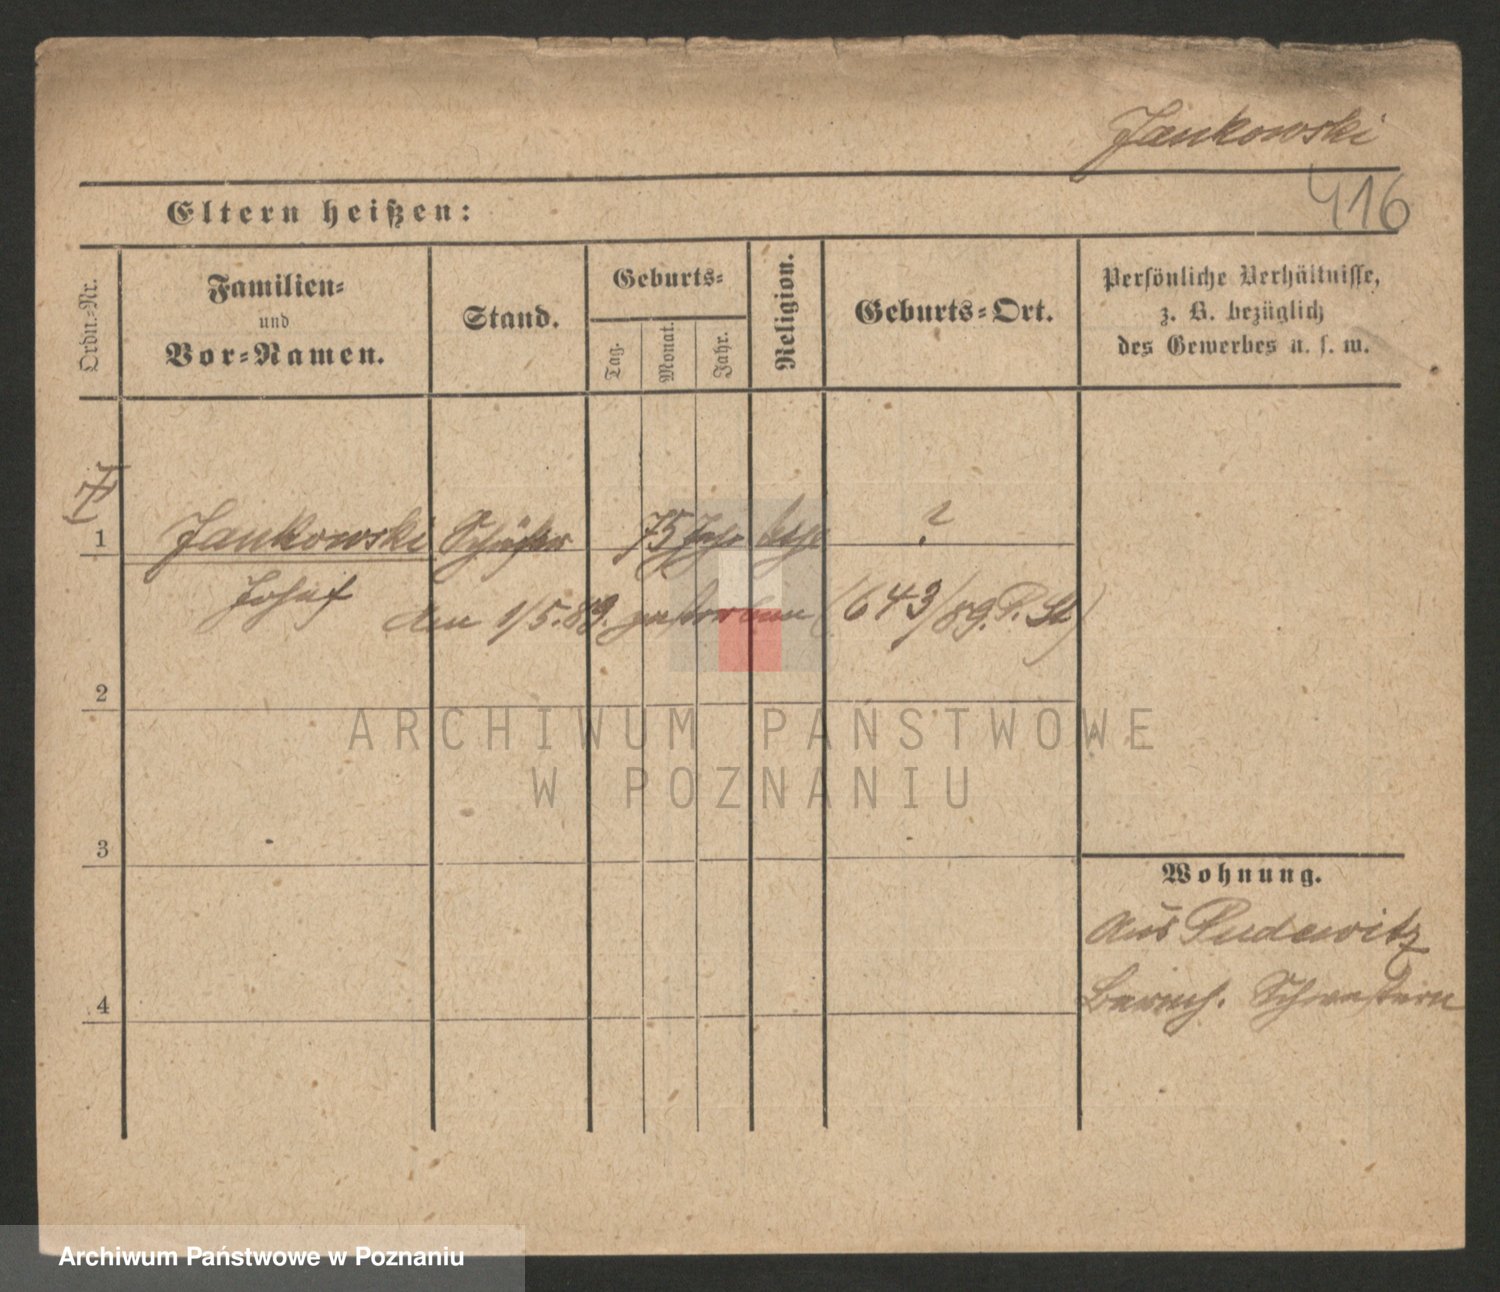 Jankowski
416
Eltern heißen:
Ordn.-Nr.
Familien-
und
Vor-Namen.
Stand.
Geburts-
Tag.
Monat.
Jahr.
Religion.
Geburts-Ort.
Persönliche Verhältnisse,
z. B. bezüglich
des Gewerbes u. s. w.
1 Jankowski 75 Jahr kath ?
Josef
am 1/5.89. gestorben (643/89. P. St)
2
ARCHIWUM PAŃSTWOWE
W POZNANIU
3
Wohnung.
aus Pudewitz
4
Barmh. Schwestern
Archiwum Państwowe w Poznaniu